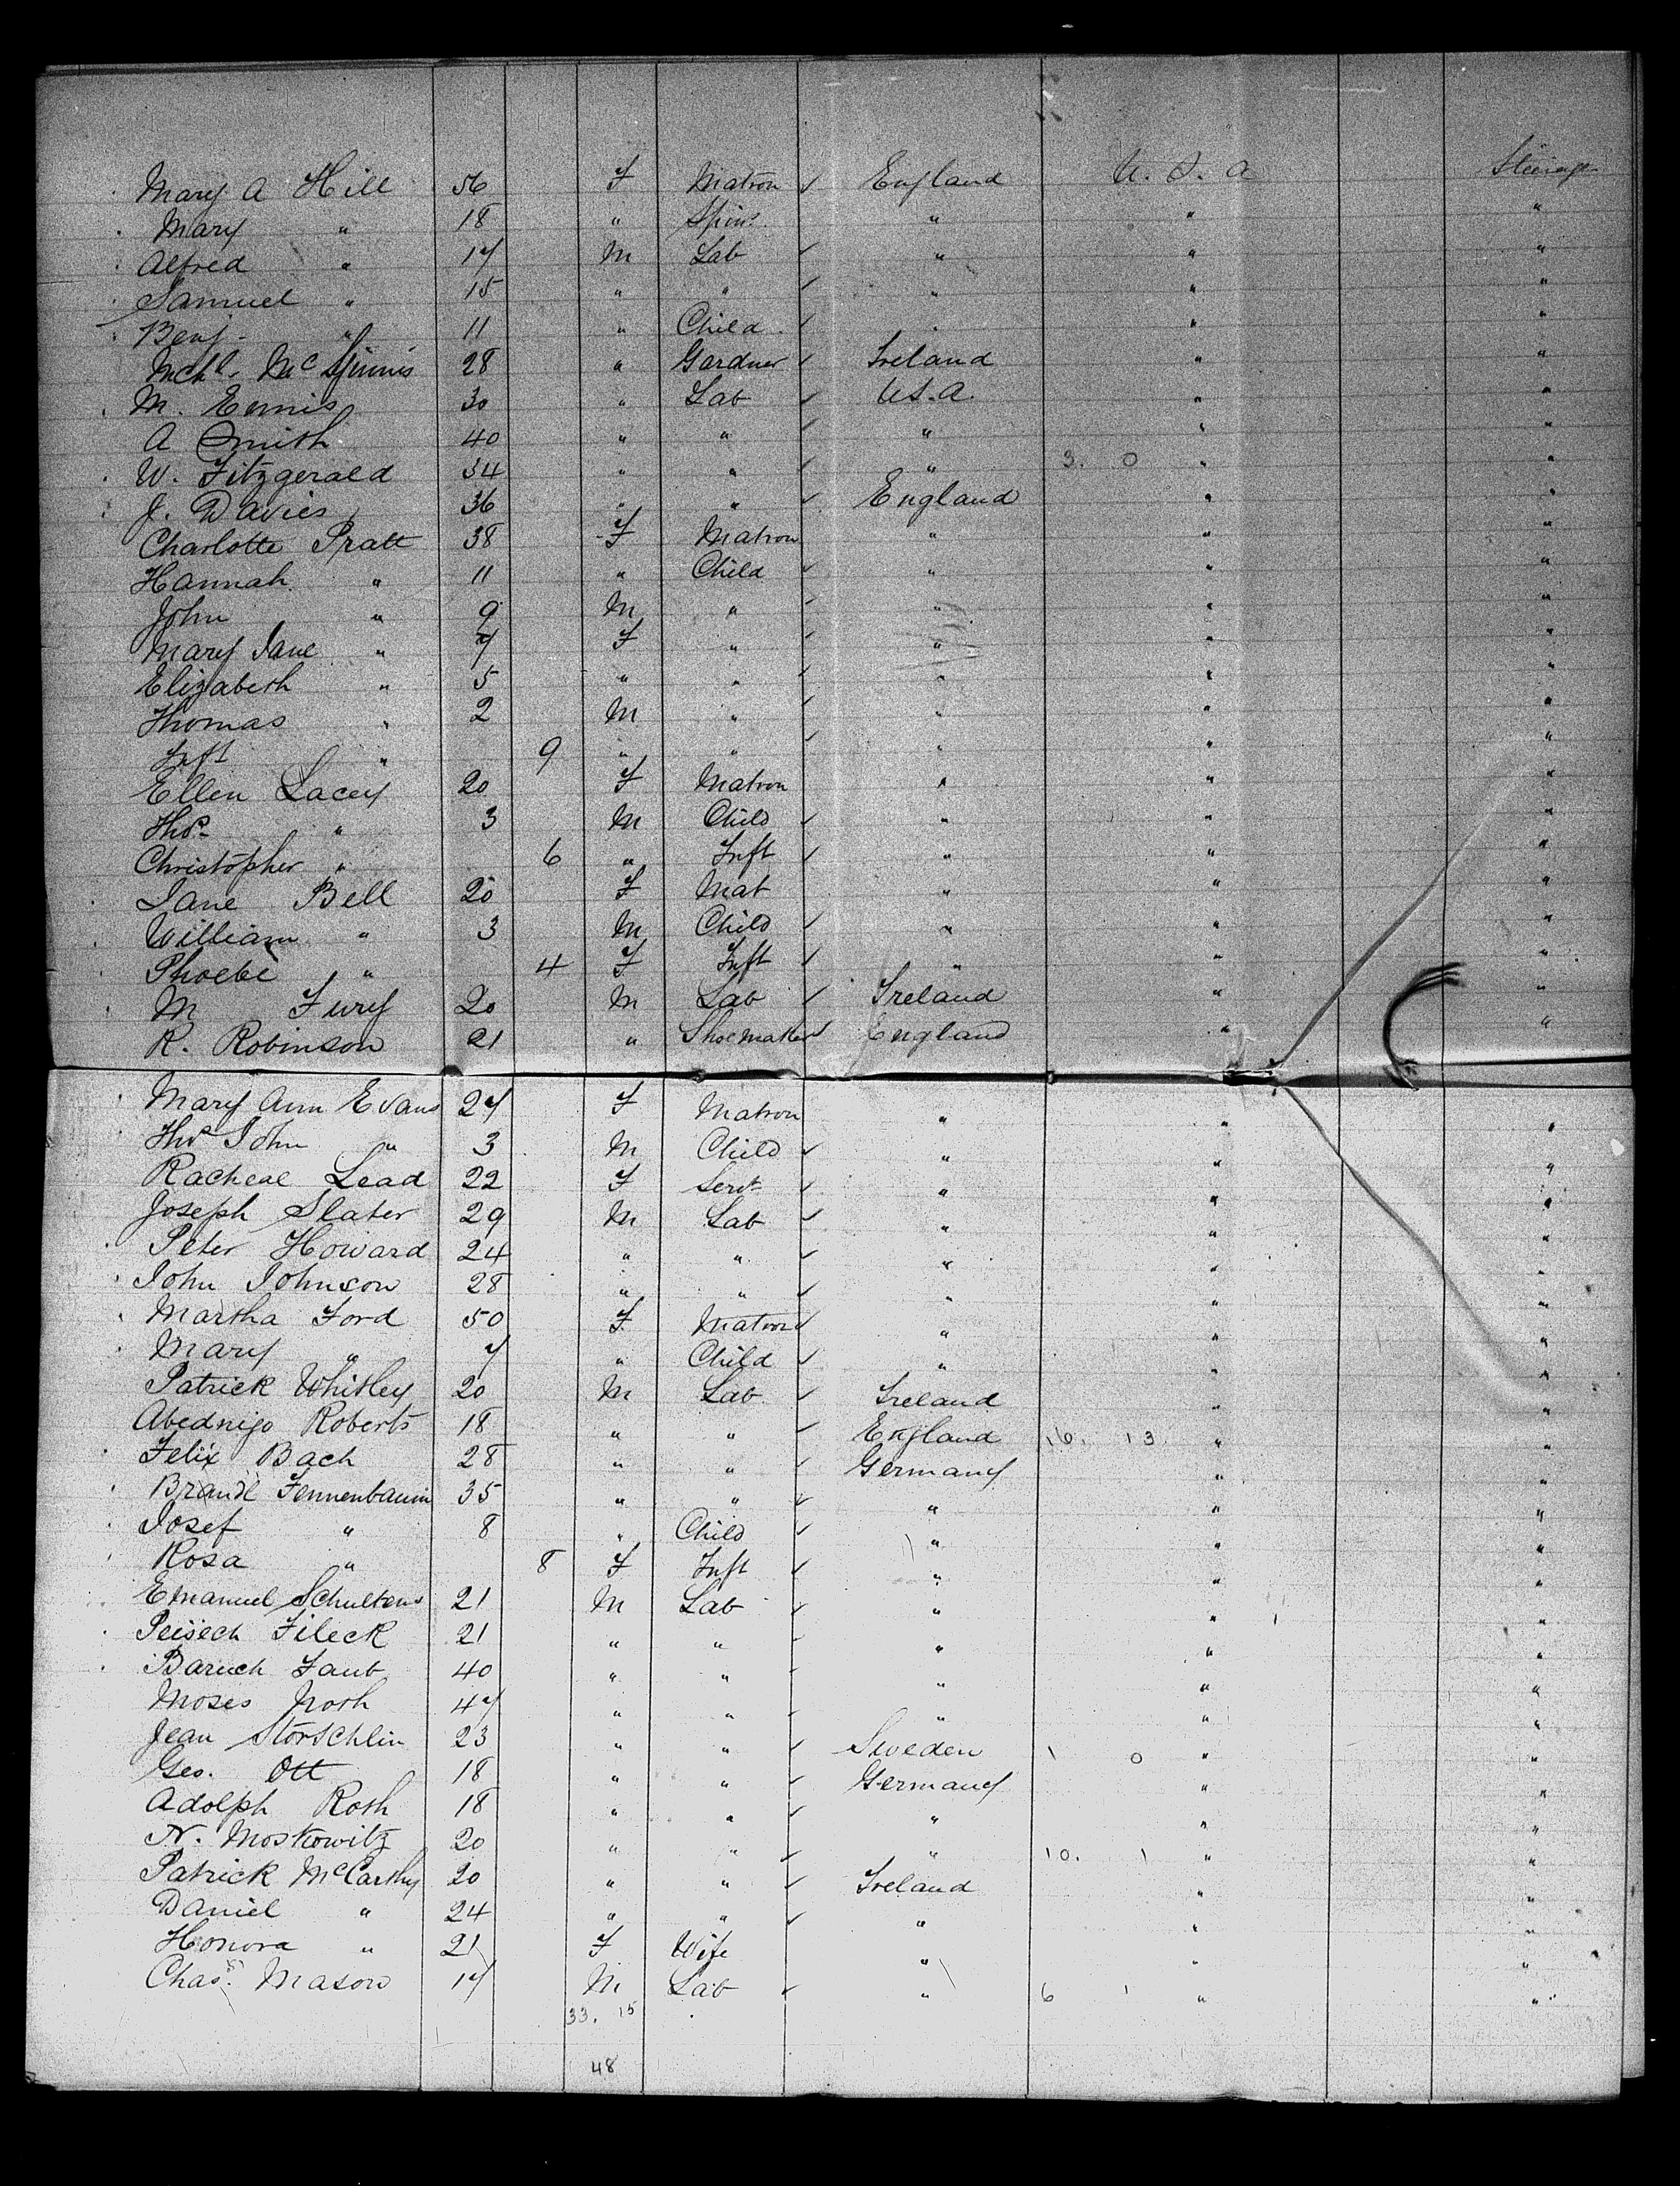 Mary A Hill 56 F Matron ✓ England U.S.A Steerage
Mary " 18 " Spinr. " " "
Alfred " 17 M Lab ✓ " " "
Samuel " 15 " " ✓ " " "
Benj- " 11 " Child ✓ " " "
Mchl. McGinnis 28 " Gardner ✓ Ireland " "
M. Ennis 30 " Lab ✓ U.S.A. " "
A Smith 40 " " ✓ " " "
W. Fitzgerald 34 " " ✓ " 3. 0 " "
J. Davies 36 " " ✓ England " "
Charlotte Pratt 38 F Matron " " "
Hannah " 11 " Child ✓ " " "
John " 9 M " ✓ " " "
Mary Jane " 7 F " ✓ " " "
Elizabeth " 5 " " ✓ " " "
Thomas " 2 M " ✓ " " "
Inft " 9 " " ✓ " " "
Ellen Lacey 20 F Matron " " "
Thos. " 3 M Child ✓ " " "
Christopher " 6 " Inft ✓ " " "
Jane Bell 20 F Mat " " "
William " 3 M Child ✓ " " "
Phoebe " 4 F Inft ✓ " " "
M Fury 20 M Lab ✓ Ireland " "
R. Robinson 21 " Shoemaker ✓ England " "
Mary Ann Evans 27 F Matron " " "
Thos John " 3 M Child ✓ " " "
Racheal Lead 22 F Servt ✓ " " "
Joseph Slater 29 M Lab ✓ " " "
Peter Howard 24 " " ✓ " " "
John Johnson 28 " " ✓ " " "
Martha Ford 50 F Matron ✓ " " "
Mary " 7 " Child ✓ " " "
Patrick Whitley 20 M Lab ✓ Ireland " "
Abednigo Roberts 18 " " ✓ England 16. 13 " "
Felix Bach 28 " " ✓ Germany " "
Brandl Tennenbaum 35 " " ✓ " " "
Josef " 8 " Child ✓ " " "
Rosa " 8 F Inft ✓ " " "
Emanuel Schultens 21 M Lab ✓ " " "
Peisech Fileck 21 " " ✓ " " "
Baruch Taub 40 " " " " "
Moses 47 " " ✓ " " "
Jean Storschlin 23 " " ✓ Sweden 1 0 " "
Geo. Ott 18 " " ✓ Germany " "
Adolph Roth 18 " " ✓ " " "
N. Moskowitz 20 " " ✓ " 10. 1 " "
Patrick McCarthy 20 " " ✓ Ireland " "
Daniel " 24 " " ✓ " " "
Honora " 21 F Wife " " "
Chas. Mason 17 M Lab ✓ " 6 1 " "
33. 15
48